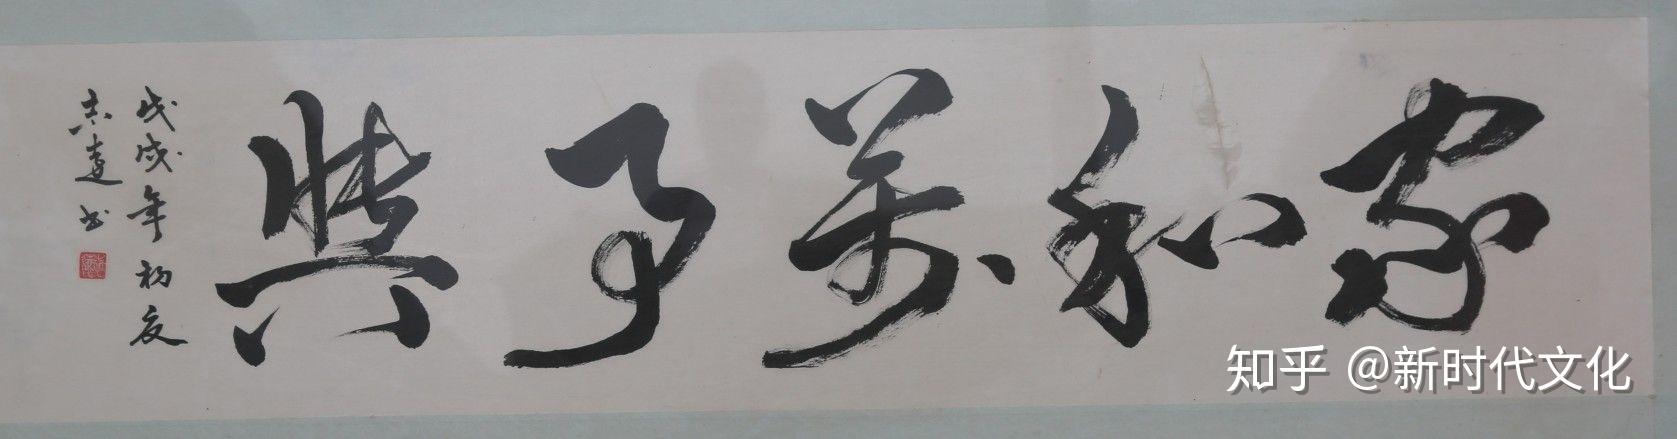 家和萬事興
戊戌年初夏
志远书
知乎 @新时代文化